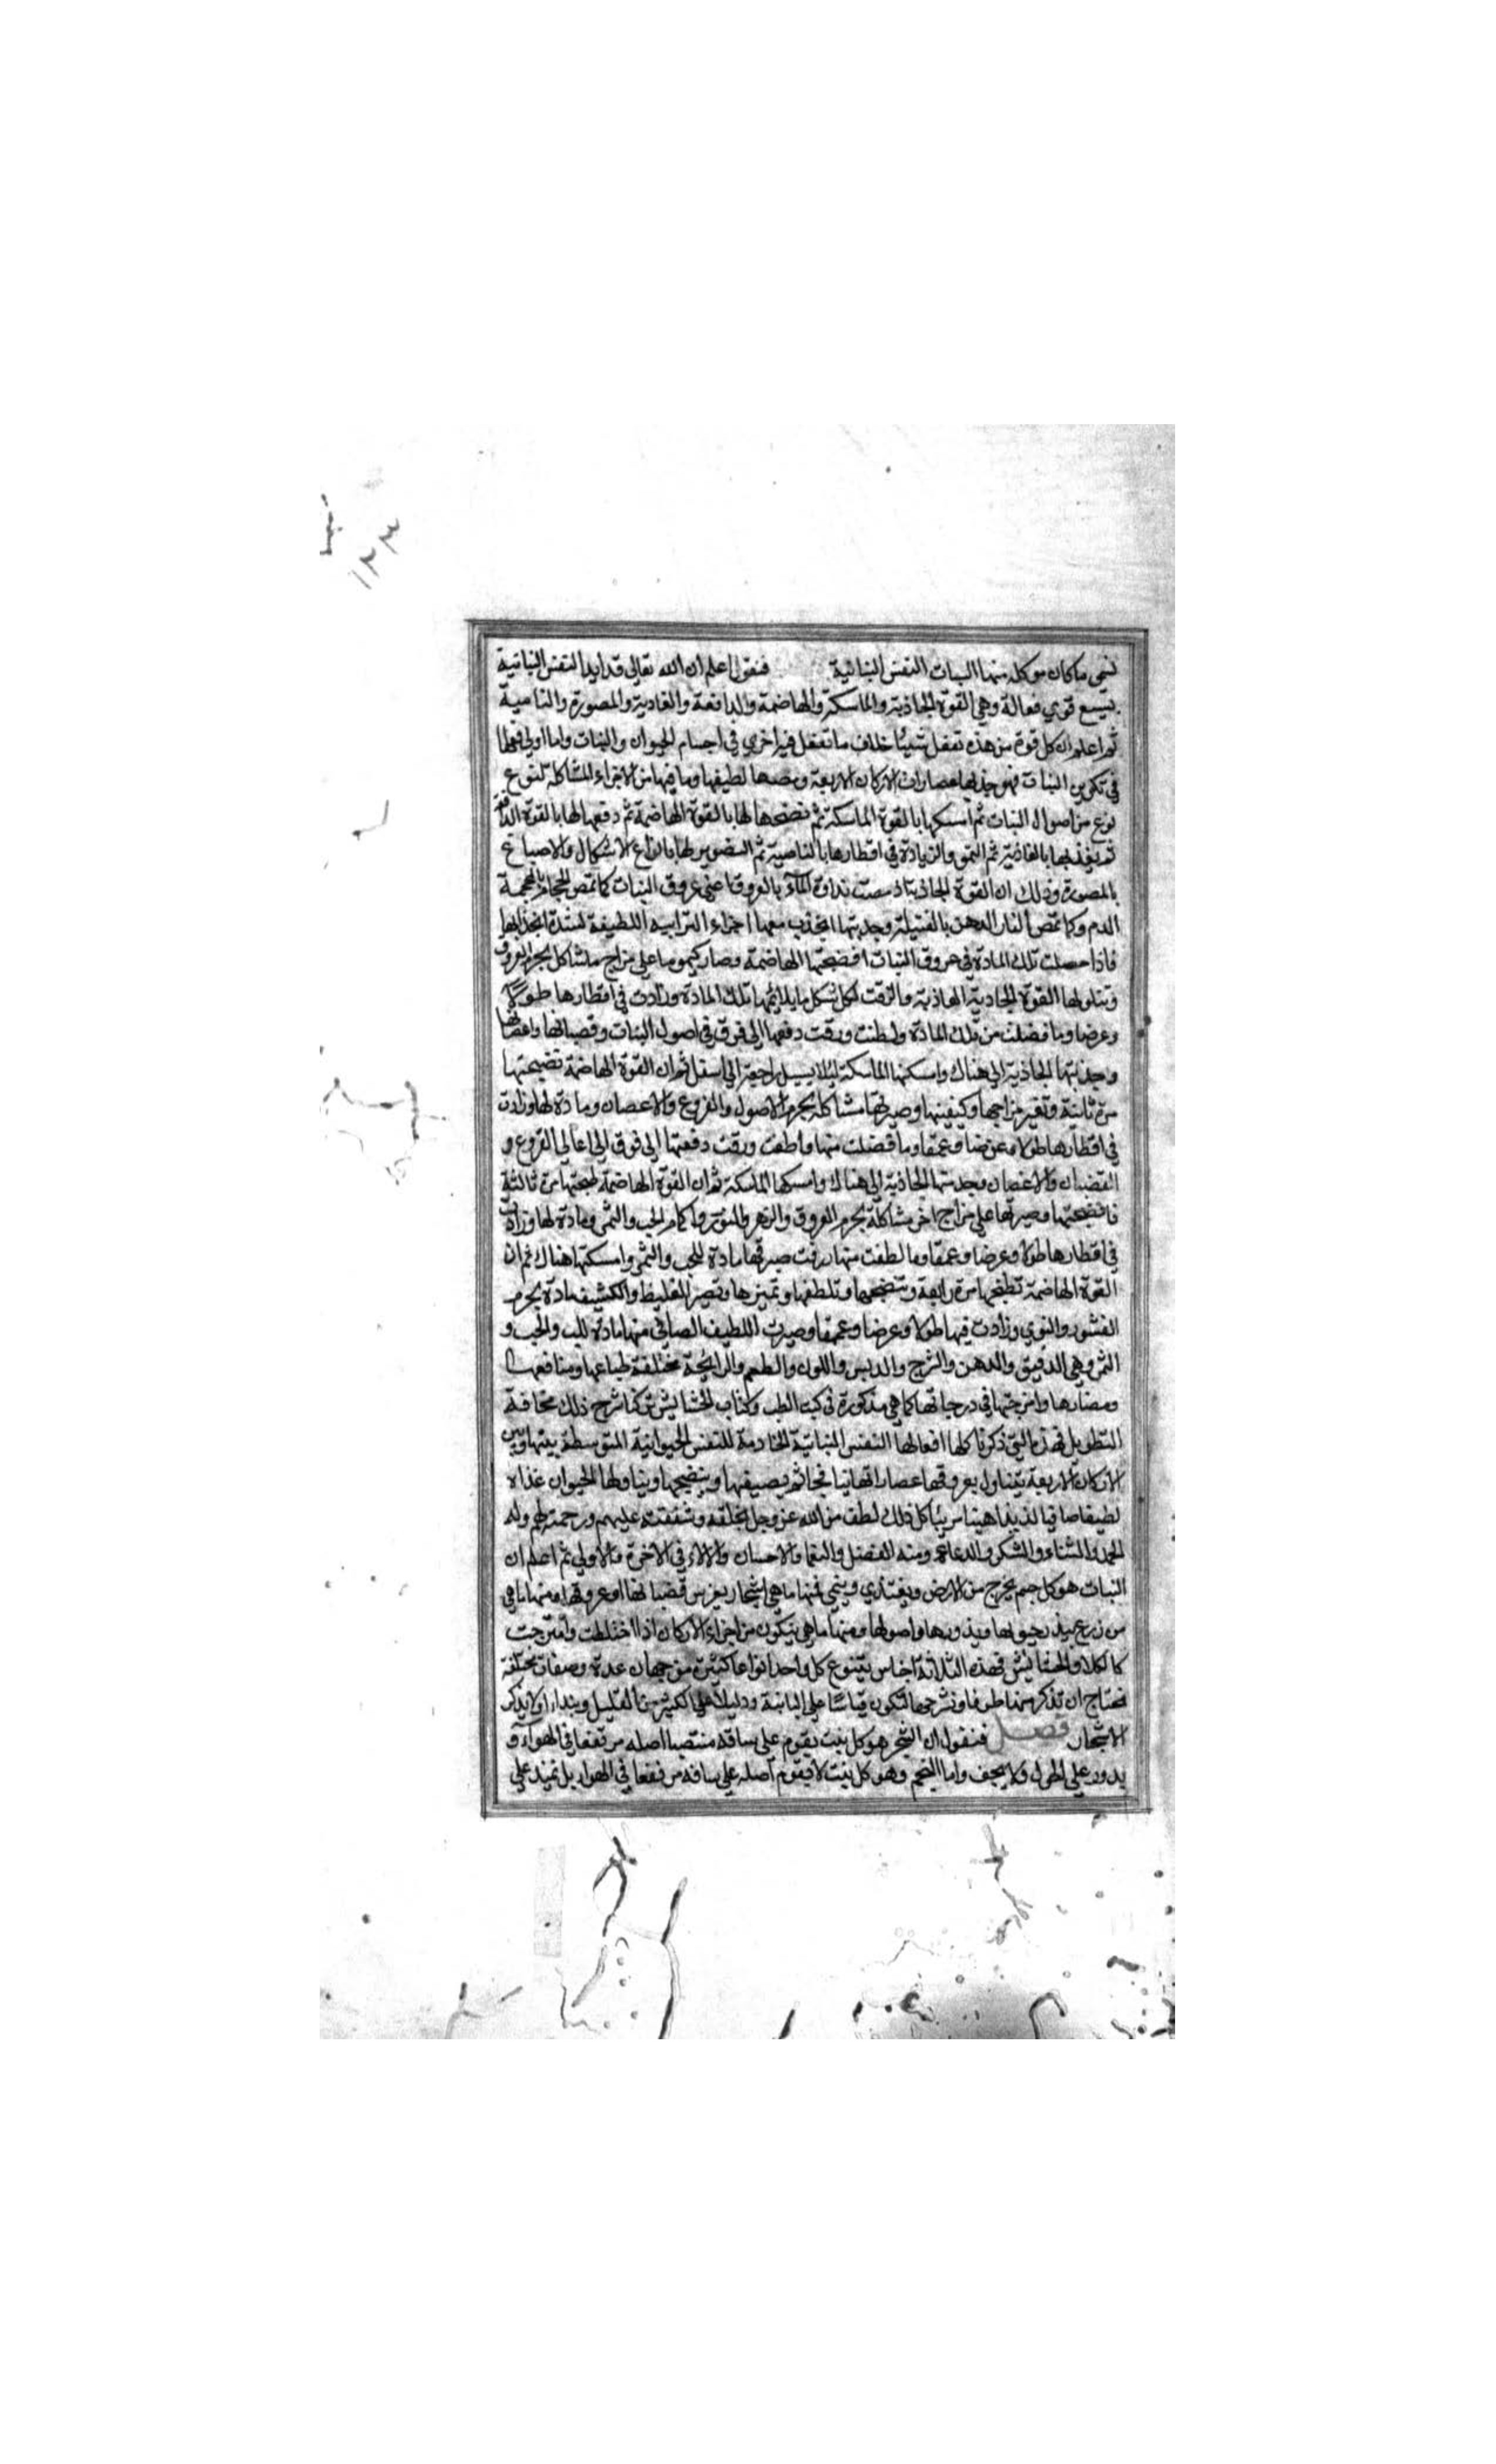 ١٢٣
نسمى ما كان موكله منها النبات النفس النباتية فنقول اعلم ان الله تعالى قد ايد النفس النباتية
بسبع قوي فعالة وهي القوة الجاذبة والماسكة والهاضمة والدافعة والغادية والمصورة والنامية
ثم اعلم ان كل قوة من هذه تفعل شيئا خلاف ما تفعل فيه اخري في اجسام الحيوان والنبات واما اولي فعلها
في تكوين النبات فهو جذبها عصارات الاركان الاربعة ومصها لطيفها وما فيها من الاجزاء المشاكلة لنوع
نوع من اصوال النبات ثم امسكها بالقوة الماسكة ثم نضجها لها بالقوة الهاضمة ثم دفعها لها بالقوة الدافعة
ثم بالغاذية ثم النمو والزيادة في اقطارها بالنامية ثم التصوير لها بانواع الاشكال والاصباغ
بالمصورة وذلك ان القوة الجاذبة اذ مصت نداوة الماء بالعروق اعني عروق النبات كما تمص الحجام بالمحجمة
الدم وكما تمص النار الدهن بالفتيلة وجذبتها انجذب معها اجزاء الترابيه اللطيفة لشدة انجذابها
فاذا حصلت تلك المادة في عروق النبات انضجتها الهاضمة وصار كيموسا على مزاج ما شاكل بجرم العروق
وتناولها القوة الجاذبة الغاذية والزقت لكل شكل ما يلايمها تلك المادة وزادت في اقطارها طولا
وعرضا وما فضلت من تلك المادة ولطفت ورقت دفعها الي فوق في اصول النبات وقضبانها واغصانها
وجذبتها الجاذبة الي هناك وامسكتها الماسكة ليلا يسيل راجعة الي اسفل ثم ان القوة الهاضمة تضجتها
مرة ثانية وتغير مزاجها وكيفيتها وصيرتها مشاكلة بجرم الاصول والفروع والاغصان ومادة لها وزادت
في اقطارها طولا وعرضا وعمقا وما فضلت منها ولطفت ورقت دفعتها الي فوق الي اعالي الفروع و
القضبان والاغصان وجذبتها الجاذبة الي هناك وامسكها الماسكة ثم ان القوة الهاضمة طبختها مرة ثالثة
فانضجتها وصيرتها علي مزاج اخر مشاكلة بجرم العروق والزهر والنور واكمام الحب والثمر ومادة لها وزادت
في اقطارها طولا وعرضا وعمقا وما لطفت منها ورقت صيرتها مادة للحب والثمر وامسكتها هناك ثم ان
القوة الهاضمة تطبخها مرة رابعة وتنضجها وتلطفها وتميزها وتصير الغليظ والكثيف مادة بجرم
القشور والنوي وزادت فيها طولا وعرضا وعمقا وصيرت اللطيف الصافي منها مادة للب والحب و
الثمر وهي الدقيق والدهن والشرج والدبس واللون والطعم والرايحة مختلفة طباعها ومنافعها
ومضارها وامزجتها في درجاتها كما هي مذكورة في كتب الطب وكتاب الحشايش تركنا شرح ذلك مخافة
التطويل فهذه التي ذكرنا كلها افعالها النفس النباتية الخادمة للنفس الحيوانية المتوسطة بينها وبين
الاركان الاربعة يتناول بعروقها عصاراتها نيا فجاثم يصيفها وينضجها ويناولها الحيوان غذاء
لطيفا صافيا لذيذا هينا مريئا كل ذلك لطف من الله عز وجل بخلقه وشفقته عليهم ورحمته لهم وله
الحمد والثناء والشكر والدعا ومنه الفضل والنعما والاحسان والالاء في الاخرة والاولي ثم اعلم ان
النبات هو كل جسم يخرج من الارض ويغتذي وينمي فمنها ما هي اشجار يغرس قضبانها او عروقها ومنها ما هي
من زرع يبذر بحبوبها وبذورها واصولها ومنها ما هي يتكون من اجزاء الاركان اذا اختلطت وامتزجت
كالكلاء والحشايش فهذه الثلاثة اجناس يتنوع كل واحد انواعا كثيرة من جهات عدة وصفات مختلفة
نحتاج ان نذكر منها طرفا ونشرحها لتكون قياسا علي الباقية ودليلا علي الكثير من القليل ونبداء اولا بذكر
الاشجار فصل فنقول ان الشجر هو كل نبت يقوم علي ساقه منتصبا اصله مرتفعا في الهواء و
يدور علي الحول ولا يجف واما النجم وهو كل نبت لا يقوم اصله علي ساقه مرتفعا في الهواء بل يمتد علي